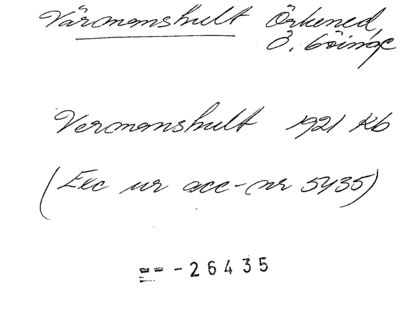 Värmanshult Örkened,
Ö. Göinge
Vermanshult 1921 Kb
(Exc ur acc-nr 5435)
== -26435